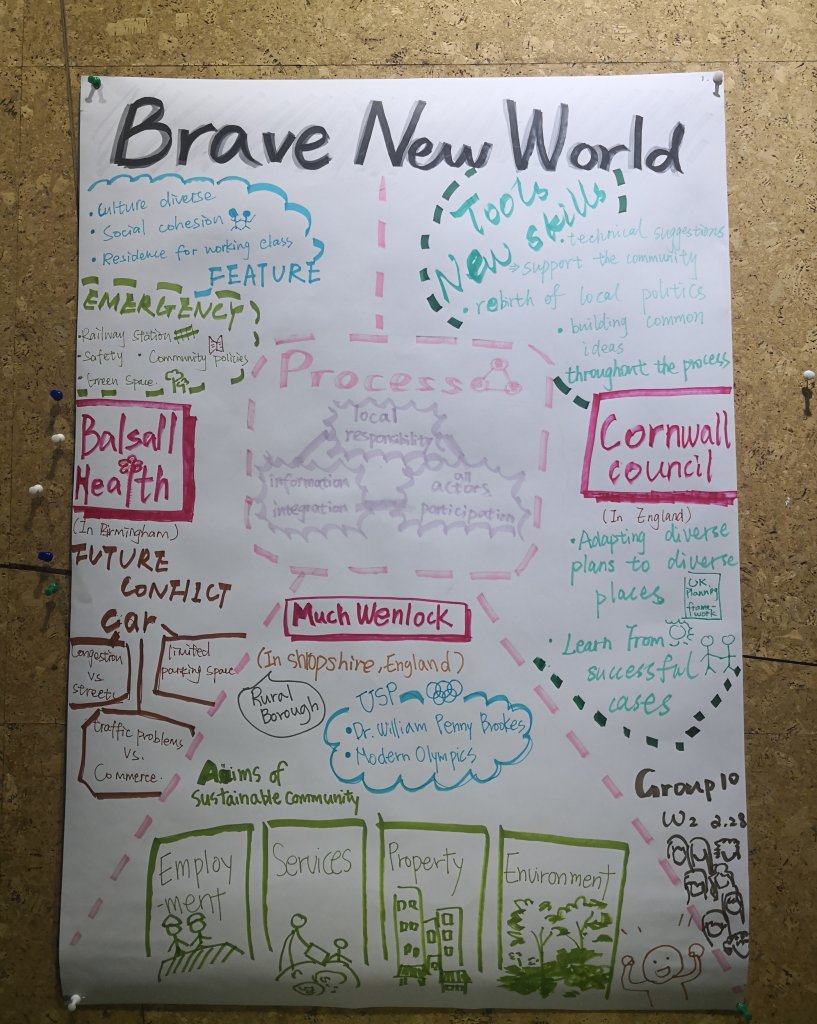 Brave New World
• Culture diverse
• Social cohesion
• Residence for working class
FEATURE
EMERGENCY
• Railway station
• Safety • Community policies
• Green Space
Balsall
Health
(In Birmingham)
FUTURE
CONFLICT
car
Congestion
VS
streets
limited
parking space
traffic problems
VS.
Commerce.
Tools
New skills
• technical suggestions
→ support the community
• rebirth of local politics
• building common
ideas
throughout the process
Cornwall
council
(In England)
• Adapting diverse
plans to diverse
places
UK
Planning
frame-
work
• Learn from
successful
cases
Process
local
responsibility
information
integration
all
actors
participation
Much Wenlock
(In shropshire, England)
Rural
Borough
USP
• Dr. William Penny Brookes
• Modern Olympics
Aims of
sustainable community
Employ
-ment
Services
Property
Environment
Group 10
W2 2.28